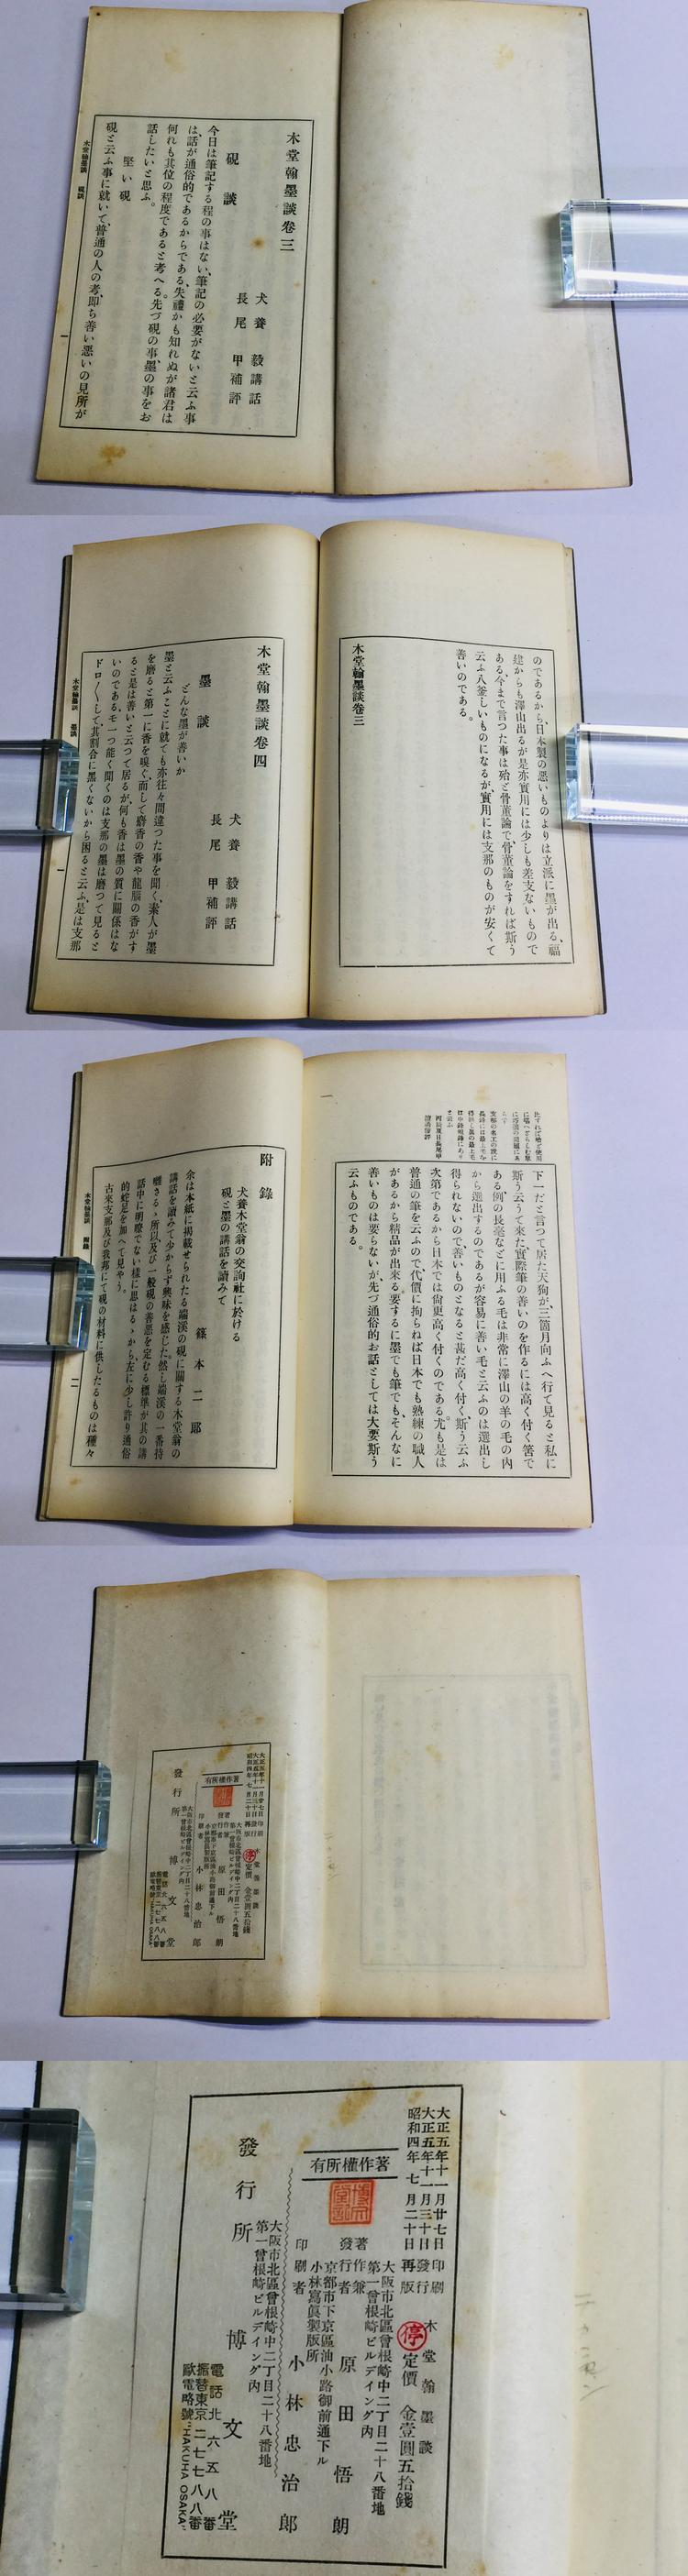 木堂翰墨談卷三
犬養毅講話
長尾甲補評
硯談
今日は筆記する程の事はない、筆記の必要がないと云ふ事
は、話が通俗的であるからである、失禮かも知れぬが諸君は
何れも其位の程度であると考へる。先づ硯の事、墨の事をお
話したいと思ふ。
堅い硯
硯と云ふ事に就いて、普通の人の考、即ち善い悪いの見所が
木堂翰墨談 硯談
一
のであるから、日本製の悪いものよりは立派に墨が出る、福
建からも澤山出るが是亦實用には少しも差支ないもので
ある、今まで言つた事は殆と骨董論で、骨董論をすれば斯う
云ふ八釜しいものになるが、實用には支那のものが安くて
善いのである。
木堂翰墨談卷三
木堂翰墨談卷四
犬養毅講話
長尾甲補評
墨談
どんな墨が善いか
墨と云ふことに就ても亦往々間違つた事を聞く、素人が墨
を磨ると第一に香を嗅ぐ、而して麝香の香や龍腦の香がす
ると是は善いと云つて居るが、何も香は墨の質に關係はな
いのである、モ一つ能く聞くのは支那の墨は磨つて見ると
ドロ〱して、其割合に黑くないから困ると云ふ、是は支那
木堂翰墨談 墨談
一
下一だと言つて居た天狗が、三箇月向ふへ行て見ると私に
斯う云うて來た、實際筆の善いのを作るには高く付く筈で
ある、例の長毫などに用ふる毛は非常に澤山の羊の毛の内
から選出するのであるが容易に善い毛と云ふのは選出し
得られないので、善いものとなると甚だ高く付く、斯う云ふ
次第であるから日本では尙更高く付くのである、尤も是は
普通の筆を云ふので、代價に拘らねば日本でも熟練の職人
があるから精品が出來る、要するに墨でも筆でも、そんなに
善いものは要らないが、先づ通俗的お話としては大要斯う
云ふものである。
附錄
犬養木堂翁の交詢社に於ける
硯と墨の講話を讀みて
篠本二郎
余は本紙に掲載せられたる端溪の硯に關する木堂翁の
講話を讀みて少からず興味を感じた、然し端溪の一番持
囃さるゝ所以及び一般硯の善惡を定むる標準が其の講
話中に明瞭でない樣に思はるゝから、左に少し許り通俗
的蛇足を加へて見やう。
古來支那及び我邦にて硯の材料に供したるものは種々
木堂翰墨談 附錄
大正五年十一月廿七日印刷
大正五年十一月三十日發行
昭和四年七月二十日再版
木堂翰墨談
停
定價 金壹圓五拾錢
有所權作著
大阪市北區曾根崎中二丁目二十八番地
第一曾根崎ビルデイング內
著作兼
發行者 原田悟朗
京都市下京區油小路御前通下ル
小林寫眞製版所
印刷者 小林忠治郎
大阪市北區曾根崎中二丁目二十八番地
第一曾根崎ビルデイング內
發行所 博文堂
電話北六五八番
振替東京二七七八八番
歐電略號"HAKUHA OSAKA"